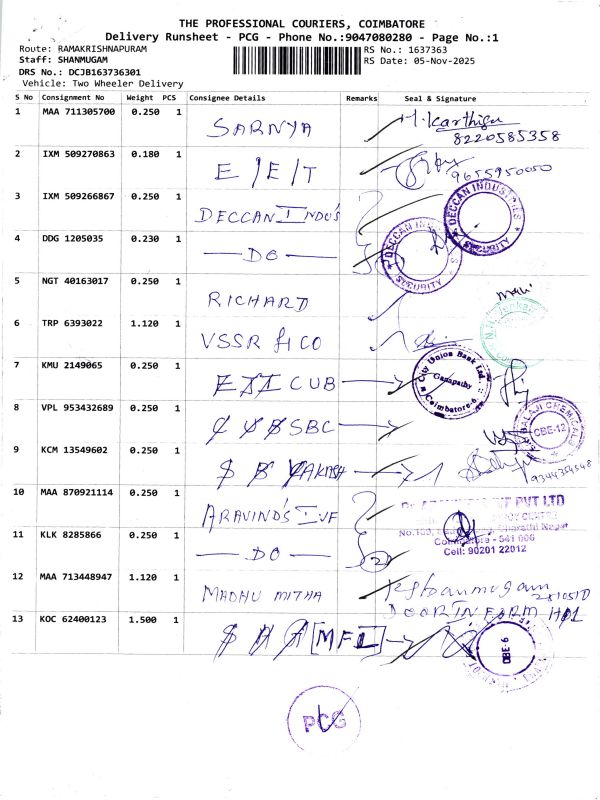 THE PROFESSIONAL COURIERS, COIMBATORE
Delivery Runsheet - PCG - Phone No.:9047080280 - Page No.:1
Route: RAMAKRISHNAPURAM
RS No.: 1637363
Staff: SHANMUGAM
RS Date: 05-Nov-2025
DRS No.: DCJB163736301
Vehicle: Two Wheeler Delivery
S No Consignment No Weight PCS Consignee Details Remarks Seal & Signature
1 MAA 711305700 0.250 1 SARNYA M. Karthiga
8220585358
2 IXM 509270863 0.180 1 E/E/T 9655950050
3 IXM 509266867 0.250 1 DECCAN INDU'S DECCAN INDUSTRIES SECURITY
4 DDG 1205035 0.230 1 DO DECCAN INDUSTRIES SECURITY
5 NGT 40163017 0.250 1 RICHARD
6 TRP 6393022 1.120 1 VSSR & CO
7 KMU 2149065 0.250 1 CUB City Union Bank Ltd. Ganapathy Coimbatore-6
8 VPL 953432689 0.250 1 SBC BALAJI CHEMICALS CBE-12
9 KCM 13549602 0.250 1 S B 9344354548
10 MAA 870921114 0.250 1 ARAVIND'S IVF PVT LTD
CENTRE
No.100, Bharathi Nagar
11 KLK 8285866 0.250 1 DO Coimbatore - 641 006
Cell: 90201 22012
12 MAA 713448947 1.120 1 MADHU MITHA
DOOR INFORM
13 KOC 62400123 1.500 1 MFL CBE-6
PCG